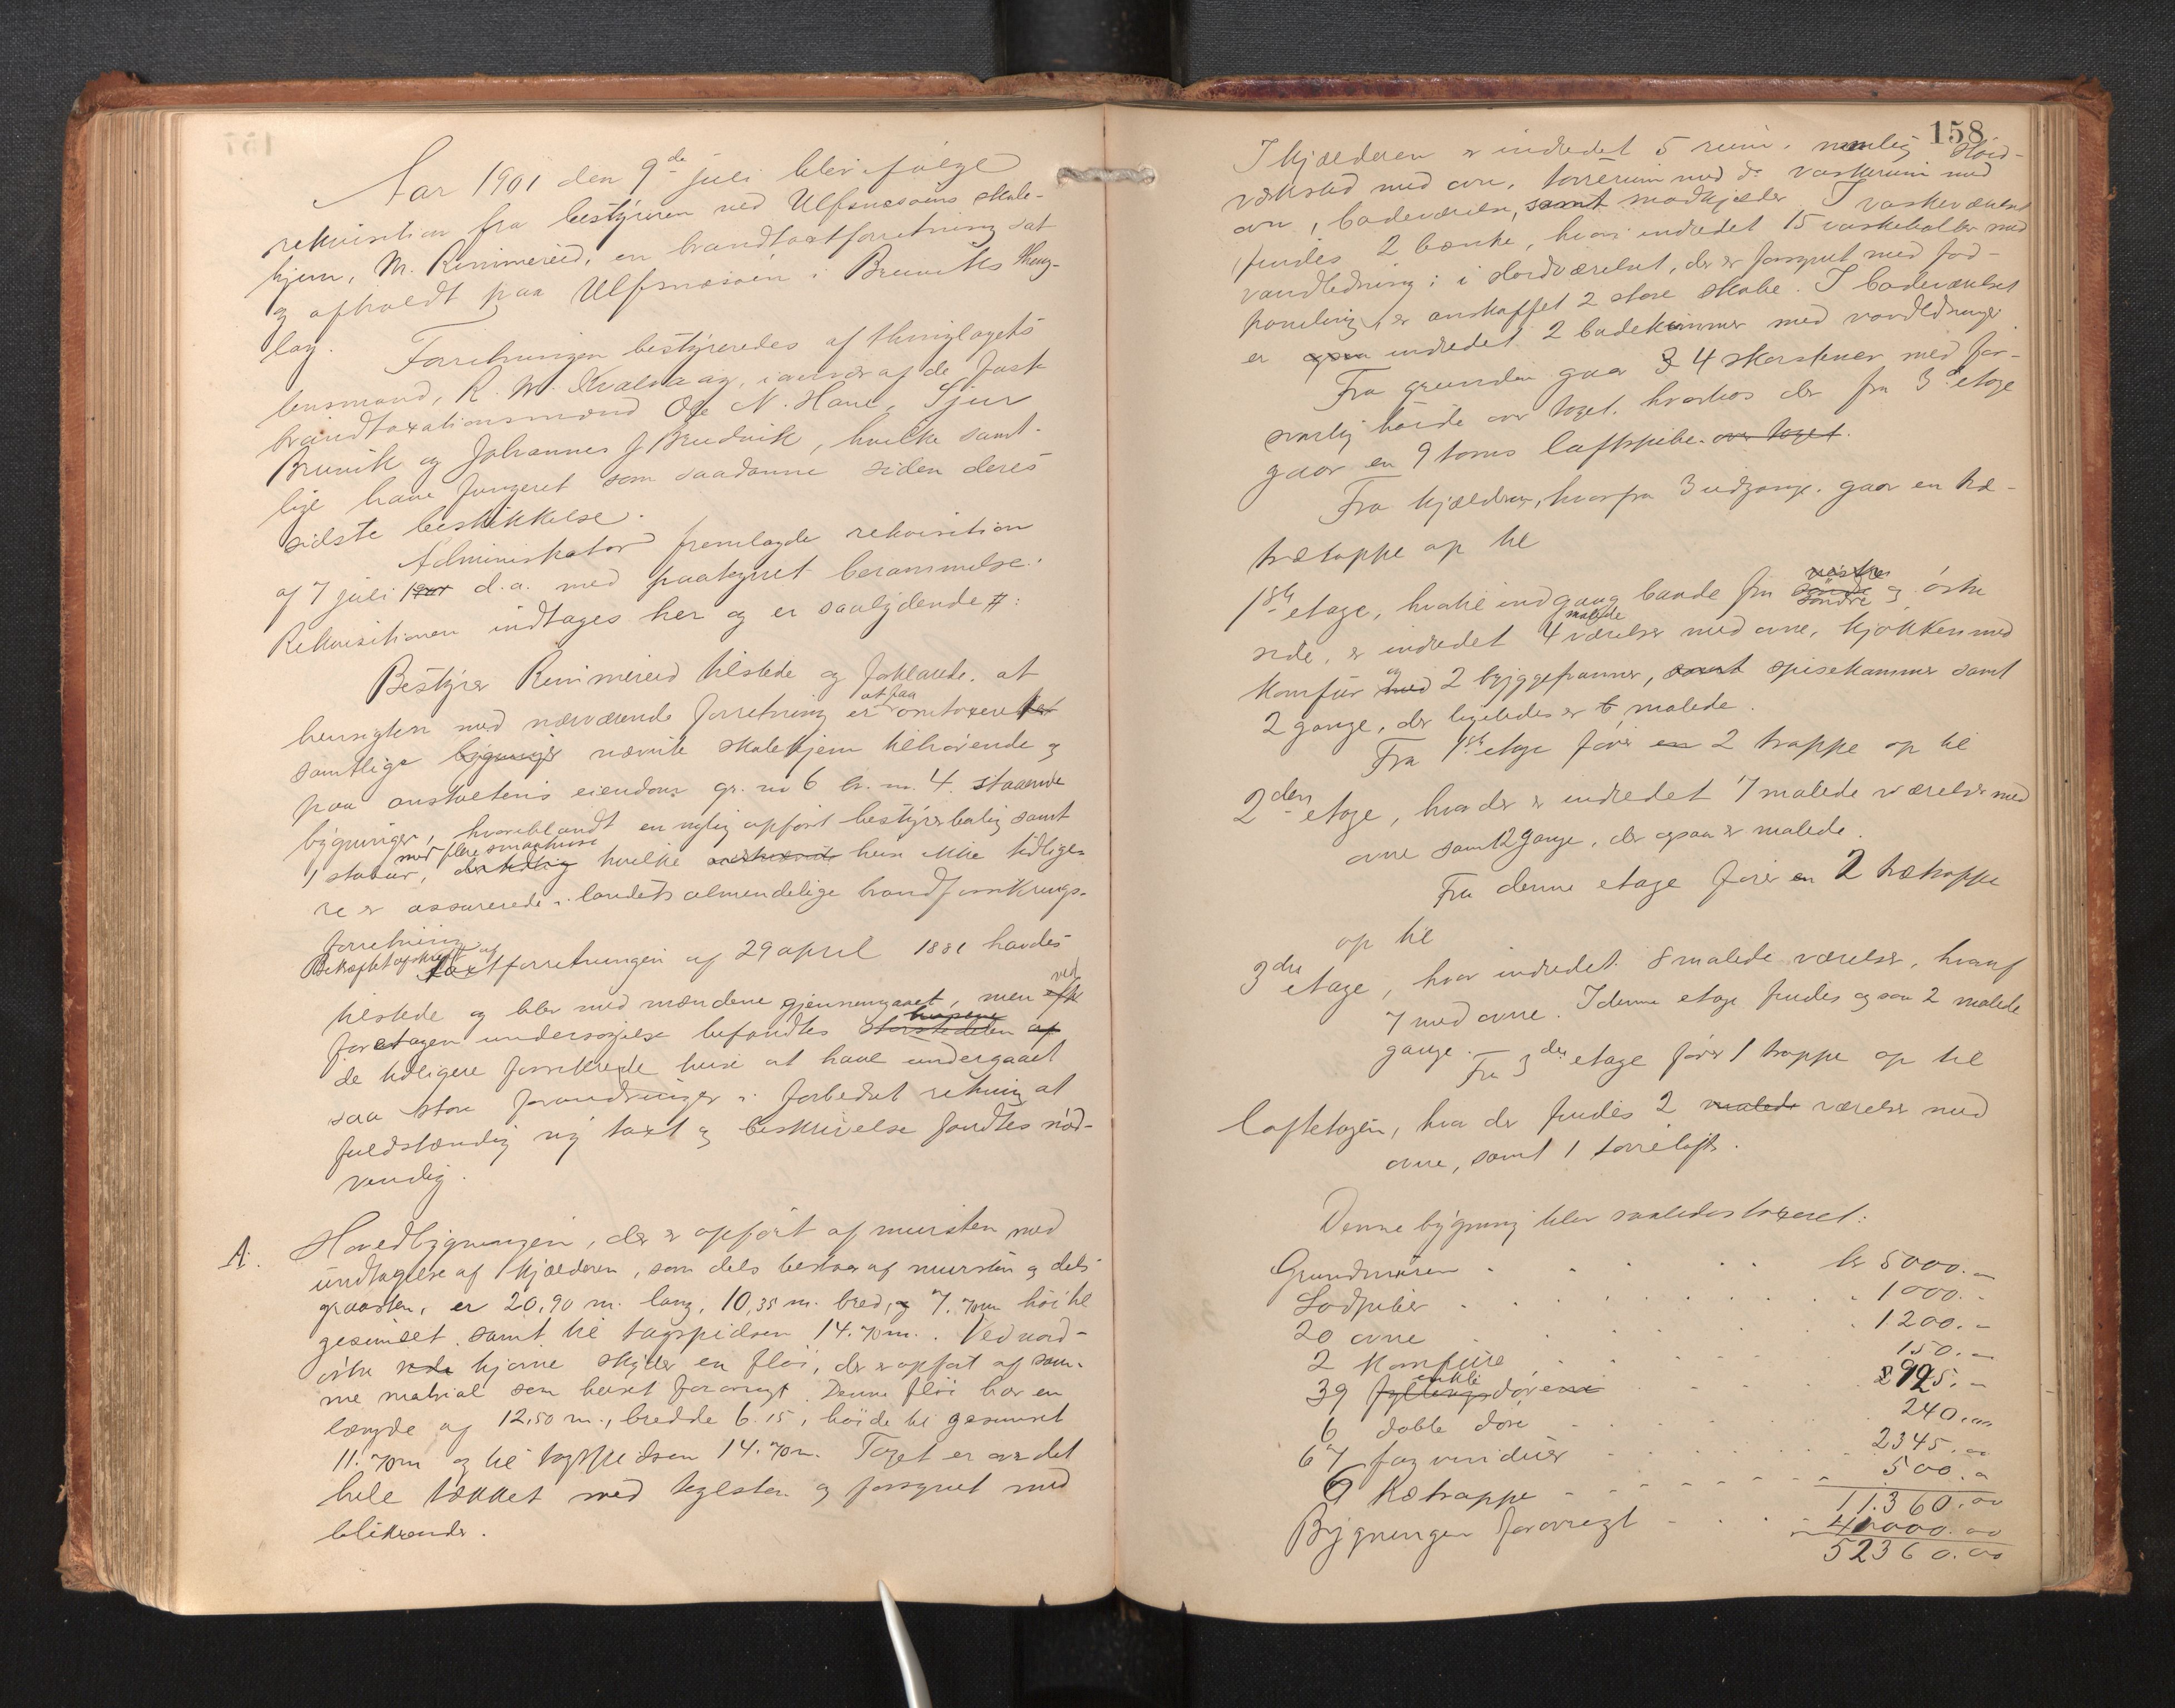 Aar 1901 den 9de juli blev ifølge
rekvisition fra bestyreren ved Ulfsnesøens skole-
hjem, M. Rimmereid, en brandtaxtforretning sat
og afholdt paa Ulfsnesøen i Bruviks thing-
lag.
Forretningen bestyreredes af thinglagets
lensmand, R. M. Kvalvaag, i nærvær af de faste
brandtaxationsmænd Ole N. Hane, Sjur
Bruvik og Johannes J Bruvik, hvilke samt-
lige have fungeret som saadanne siden deres
sidste beskikkelse.
Administrator fremlagde rekvisition
af 7 juli 1901 d.a. med paategnet berammelse.
Rekvisitionen indtages her og er saalydende #:
Bestyrer Rimmereid tilstede og forklarede, at
hensigten med nærværende forretning er at faa omtaxeret
samtlige bygninger nævnte skolehjem tilhørende og
paa anstaltens eiendom gr. no 6 br. no. 4 staaende
bygninger, hvoriblandt en nylig opført bestyrerbolig samt
1 stabur, med flere smaahuse hvilke huse ikke tidlige-
re er assurerede i landets almindelige brandforsikrings-
forretning
Bekræftet afskrift af taxtforretningen af 29 april 1881 havdes
tilstede og blev med mændene gjennemgaaet, men ved
foretagen undersøgelse befandtes husene størstedelen af
de tidligere forsikrede huse at have undergaaet
saa store forandringer i forbedret retning at
fuldstændig ny taxt og beskrivelse fandtes nød-
vendig.
A. Hovedbygningen, der er opført af mursten med
undtagelse af kjælderen, som dels bestaar af mursten og dels
graasten, er 20,90 m. lang, 10,35 m. bred, og 7.70m høi til
gesimset samt til tagspidsen 14.70m. Ved nord-
østre side hjørne skyder en fløi, der er opført af sam-
me matrial som huset forøvrigt. Denne fløi har en
længde af 12,50 m., bredde 6.15, høide til gesimset
11.70m og til tagspidsen 14.70m. Taget er over det
hele tækket med teglsten og forsynet med
blikrender.
158
I kjælderen er indredet 5 rum, nemlig sløid-
værksted med ovn, tørrerum med do vaskerum med
ovn, badeværelse, samt madkjælder I vaskeværelset
findes 2 bænke, hvori indredet 15 vaskeballer med
vandledning; i sløidværelset, der er forsynet med fod-
paneling, er anskaffet 2 store skabe. I badeværelset
er ogsaa indredet 2 badekummer med vandledninger.
Fra grunden gaar 3 4 skorstener med for-
svarlig høide over taget, hvorhos der fra 3die etage
gaar en 9 toms luftpibe over taget.
Fra kjælderen, hvorfra 3 udgange, gaar en træ-
trætrappe op til
1ste etage, hvortil indgang baade fra vestre søndre og østre
side, er indredet 4 malede værelser med ovne, kjøkken med
komfur og med 2 byggepanner, samt spisekammer samt
2 gange, der ligeledes er malede.
Fra 1ste etage fører en 2 trappe op til
2den etage, hvor der er indredet 7 malede værelser med
ovne samt 2 gange, der ogsaa er malede.
Fra denne etage fører en 2 trætrappe
op til
3die etage, hvor indredet 8 malede værelser, hvoraf
7 med ovne. I denne etage findes ogsaa 2 malede
gange. — Fra 3die etage fører 1 trappe op til
loftetagen, hvor der findes 2 malede værelser med
ovne, samt 1 tørreloft.
Denne bygning blev saaledes taxeret:
Grundmuren kr 5000.-
Lodpiber 1000.-
20 ovne 1200.-
2 komfure 150.-
39 fyldings enkle døre 925.-
6 doble døre 240.00
67 fag vinduer 2345.00
6 trætrappe 500.00
11.360.00
Bygningen forøvrigt 41000.00
52360.00